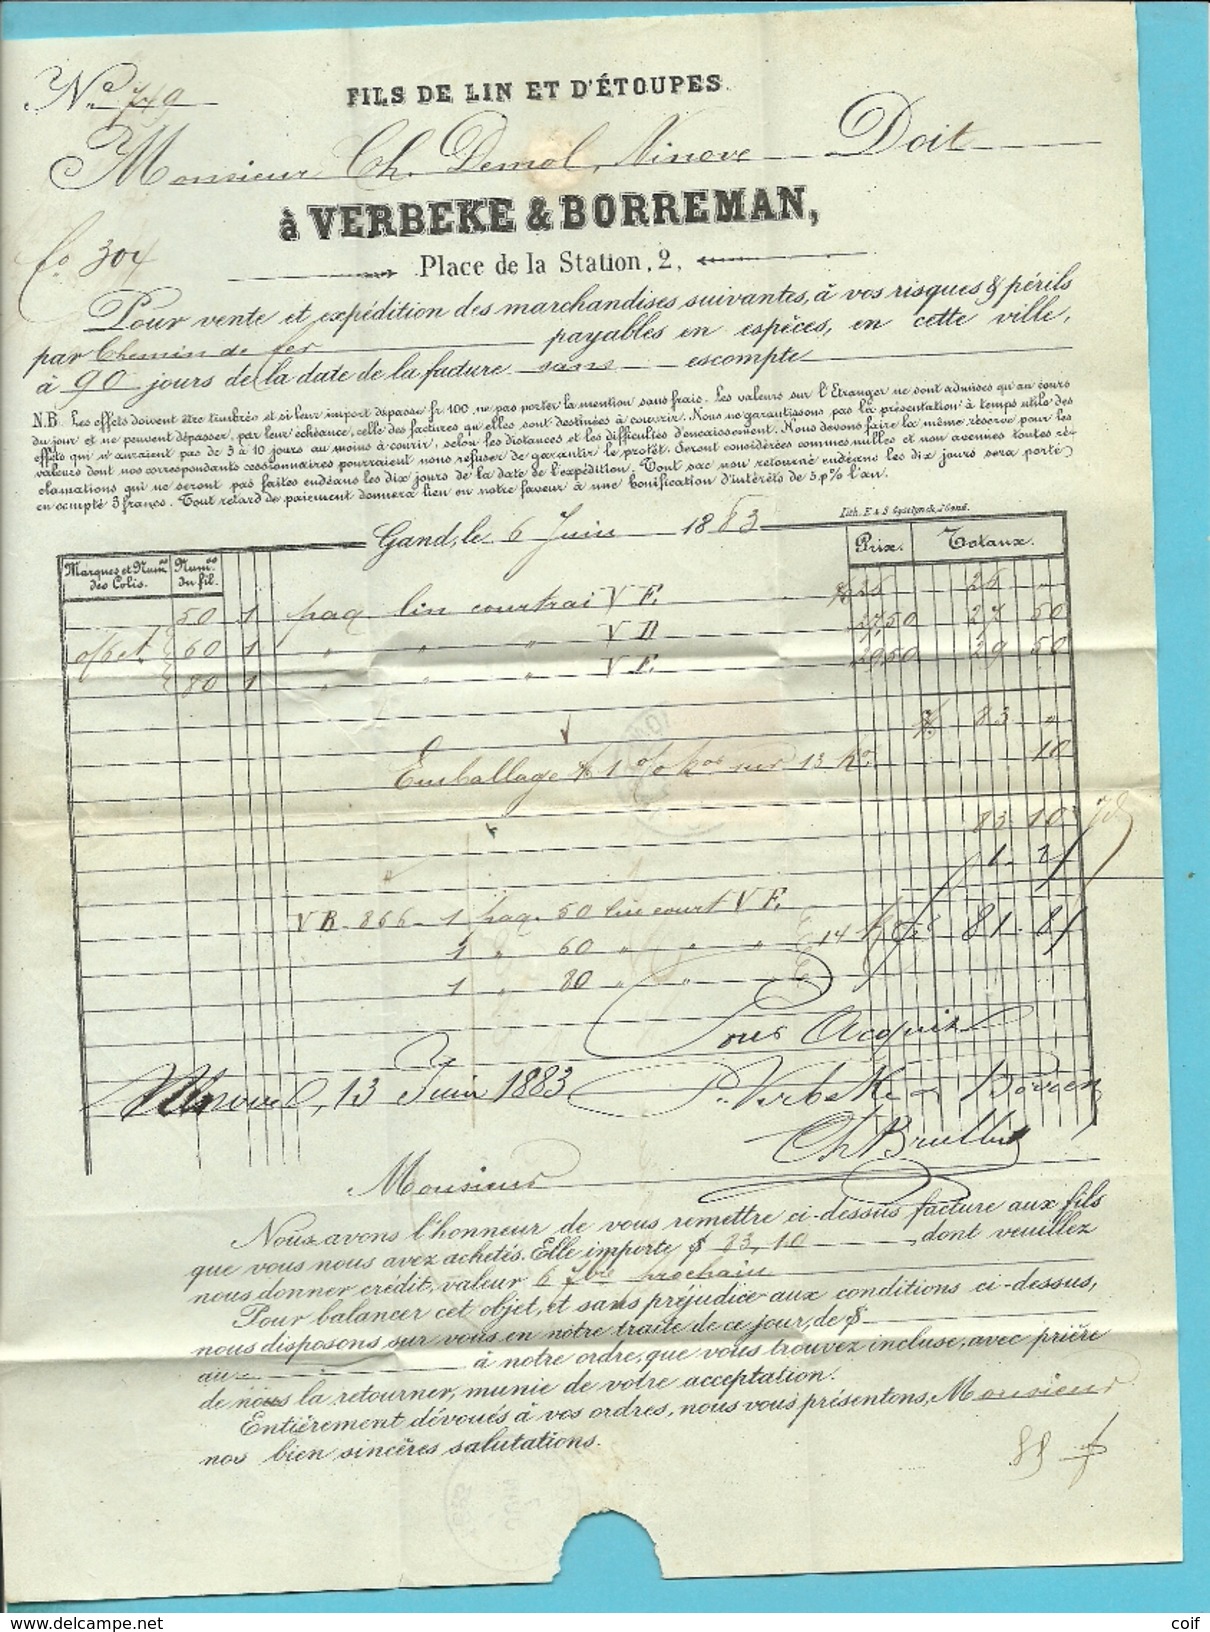 No 749
FILS DE LIN ET D'ÉTOUPES
Monsieur Ch. Demol, Ninove Doit
à VERBEKE & BORREMAN,
fo. 304
Place de la Station, 2,
Pour vente et expédition des marchandises suivantes, à vos risques & périls
par Chemin de fer payables en espèces, en cette ville,
à 90 jours de la date de la facture sans escompte
N.B. Les effets doivent être timbrés et si leur import dépasse fr 100, ne pas porter la mention sans frais. Les valeurs sur l'Etranger ne sont admises qu'au cours
du jour et ne peuvent dépasser, par leur échéance, celle des factures qu'elles sont destinées à couvrir. Nous ne garantissons pas la présentation à temps utile des
effets qui n'auraient pas de 3 à 10 jours au moins à courir, selon les distances et les difficultés d'encaissement. Nous devons faire la même réserve pour les
valeurs dont nos correspondants cessionnaires pourraient nous refuser de garantir le protêt. Seront considérées commes nulles et non avenues toutes ré-
clamations qui ne seront pas faites endéans les dix jours de la date de l'expédition. Tout sac non retourné endéans les dix jours sera porté
en compte 3 francs. Tout retard de paiement donnera lien en notre faveur à une bonification d'intérêts de 5 p% l'an.
Lith. F. & S. Gyselynck, à Gand.
Gand, le 6 Juin 1883
Marques et Num.os des Colis. Num.os du fil. Prix. Totaux.
50 1 paq lin courtrai V F. 26 26 "
60 1 " " " V D 27,50 27 50
80 1 " " " V F. 29,50 29 50
83 "
Emballage 1 sur 13 ko. 10
83 10
1 - 
V B 866 - 1 paq. 50 lin court V F.
1 " 60 " " " 14 81 - 
1 " 80 " "
Pour Acquit
Ninove, 13 Juin 1883
P. Verbeke
Monsieur
Nous avons l'honneur de vous remettre ci-dessus facture aux fils
que vous nous avez achetés. Elle importe f 83,10 dont veuillez
nous donner crédit, valeur 6 7bre prochain
Pour balancer cet objet, et sans préjudice aux conditions ci-dessus,
nous disposons sur vous en notre traite de ce jour, de f
au à notre ordre, que vous trouvez incluse, avec prière
de nous la retourner, munie de votre acceptation.
Entièrement dévoués à vos ordres, nous vous présentons, Monsieur
nos bien sincères salutations.
coif